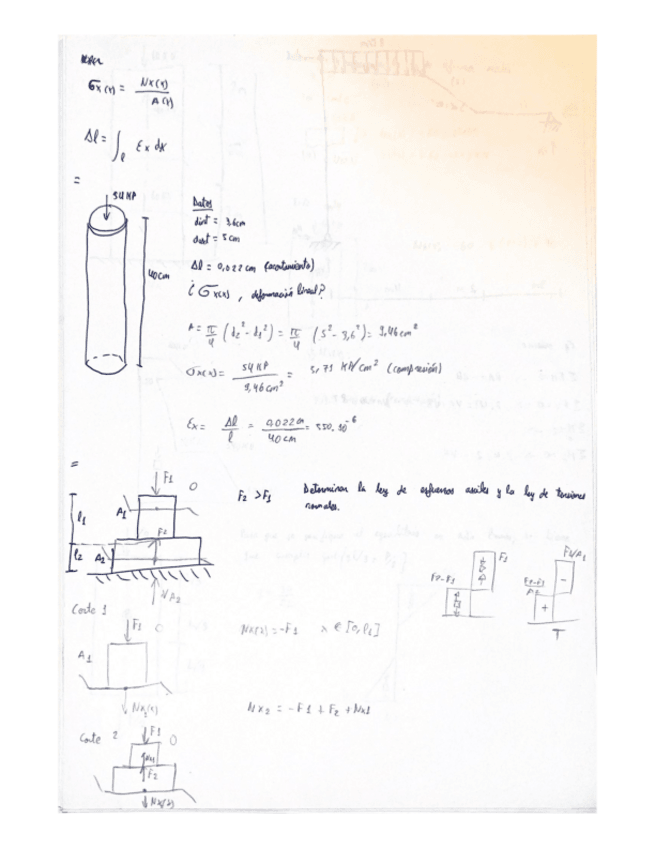 σx(x) = Nx(x) / A(x)
Δl = ∫l εx dx
=
54 KP
40 cm
Datos
dint = 3,6cm
dext = 5 cm
Δl = 0,022 cm (acortamiento)
¿ σx(x) , deformación lineal?
A = π/4 (d2² - d1²) = π/4 (5² - 3,6²) = 9,46 cm²
σx(x) = 54 KP / 9,46 cm² = 5,71 KP/cm² (compresión)
εx = Δl / l = 0,022 cm / 40 cm = 550.10⁻⁶
=
F1
O
A1
l1
F2
l2
A2
VA2
F2 > F1 Determinar la ley de esfuerzos axiles y la ley de tensiones normales.
F1
F2-F1
F1/A1
F2-F1
A2
-
+
T
Corte 1
F1
O
A1
Nx1(x)
Nx(x) = -F1 x ∈ [0, l1]
Nx2 = -F1 + F2 + Nx1
Corte 2
F1
O
F2
Nx(x)